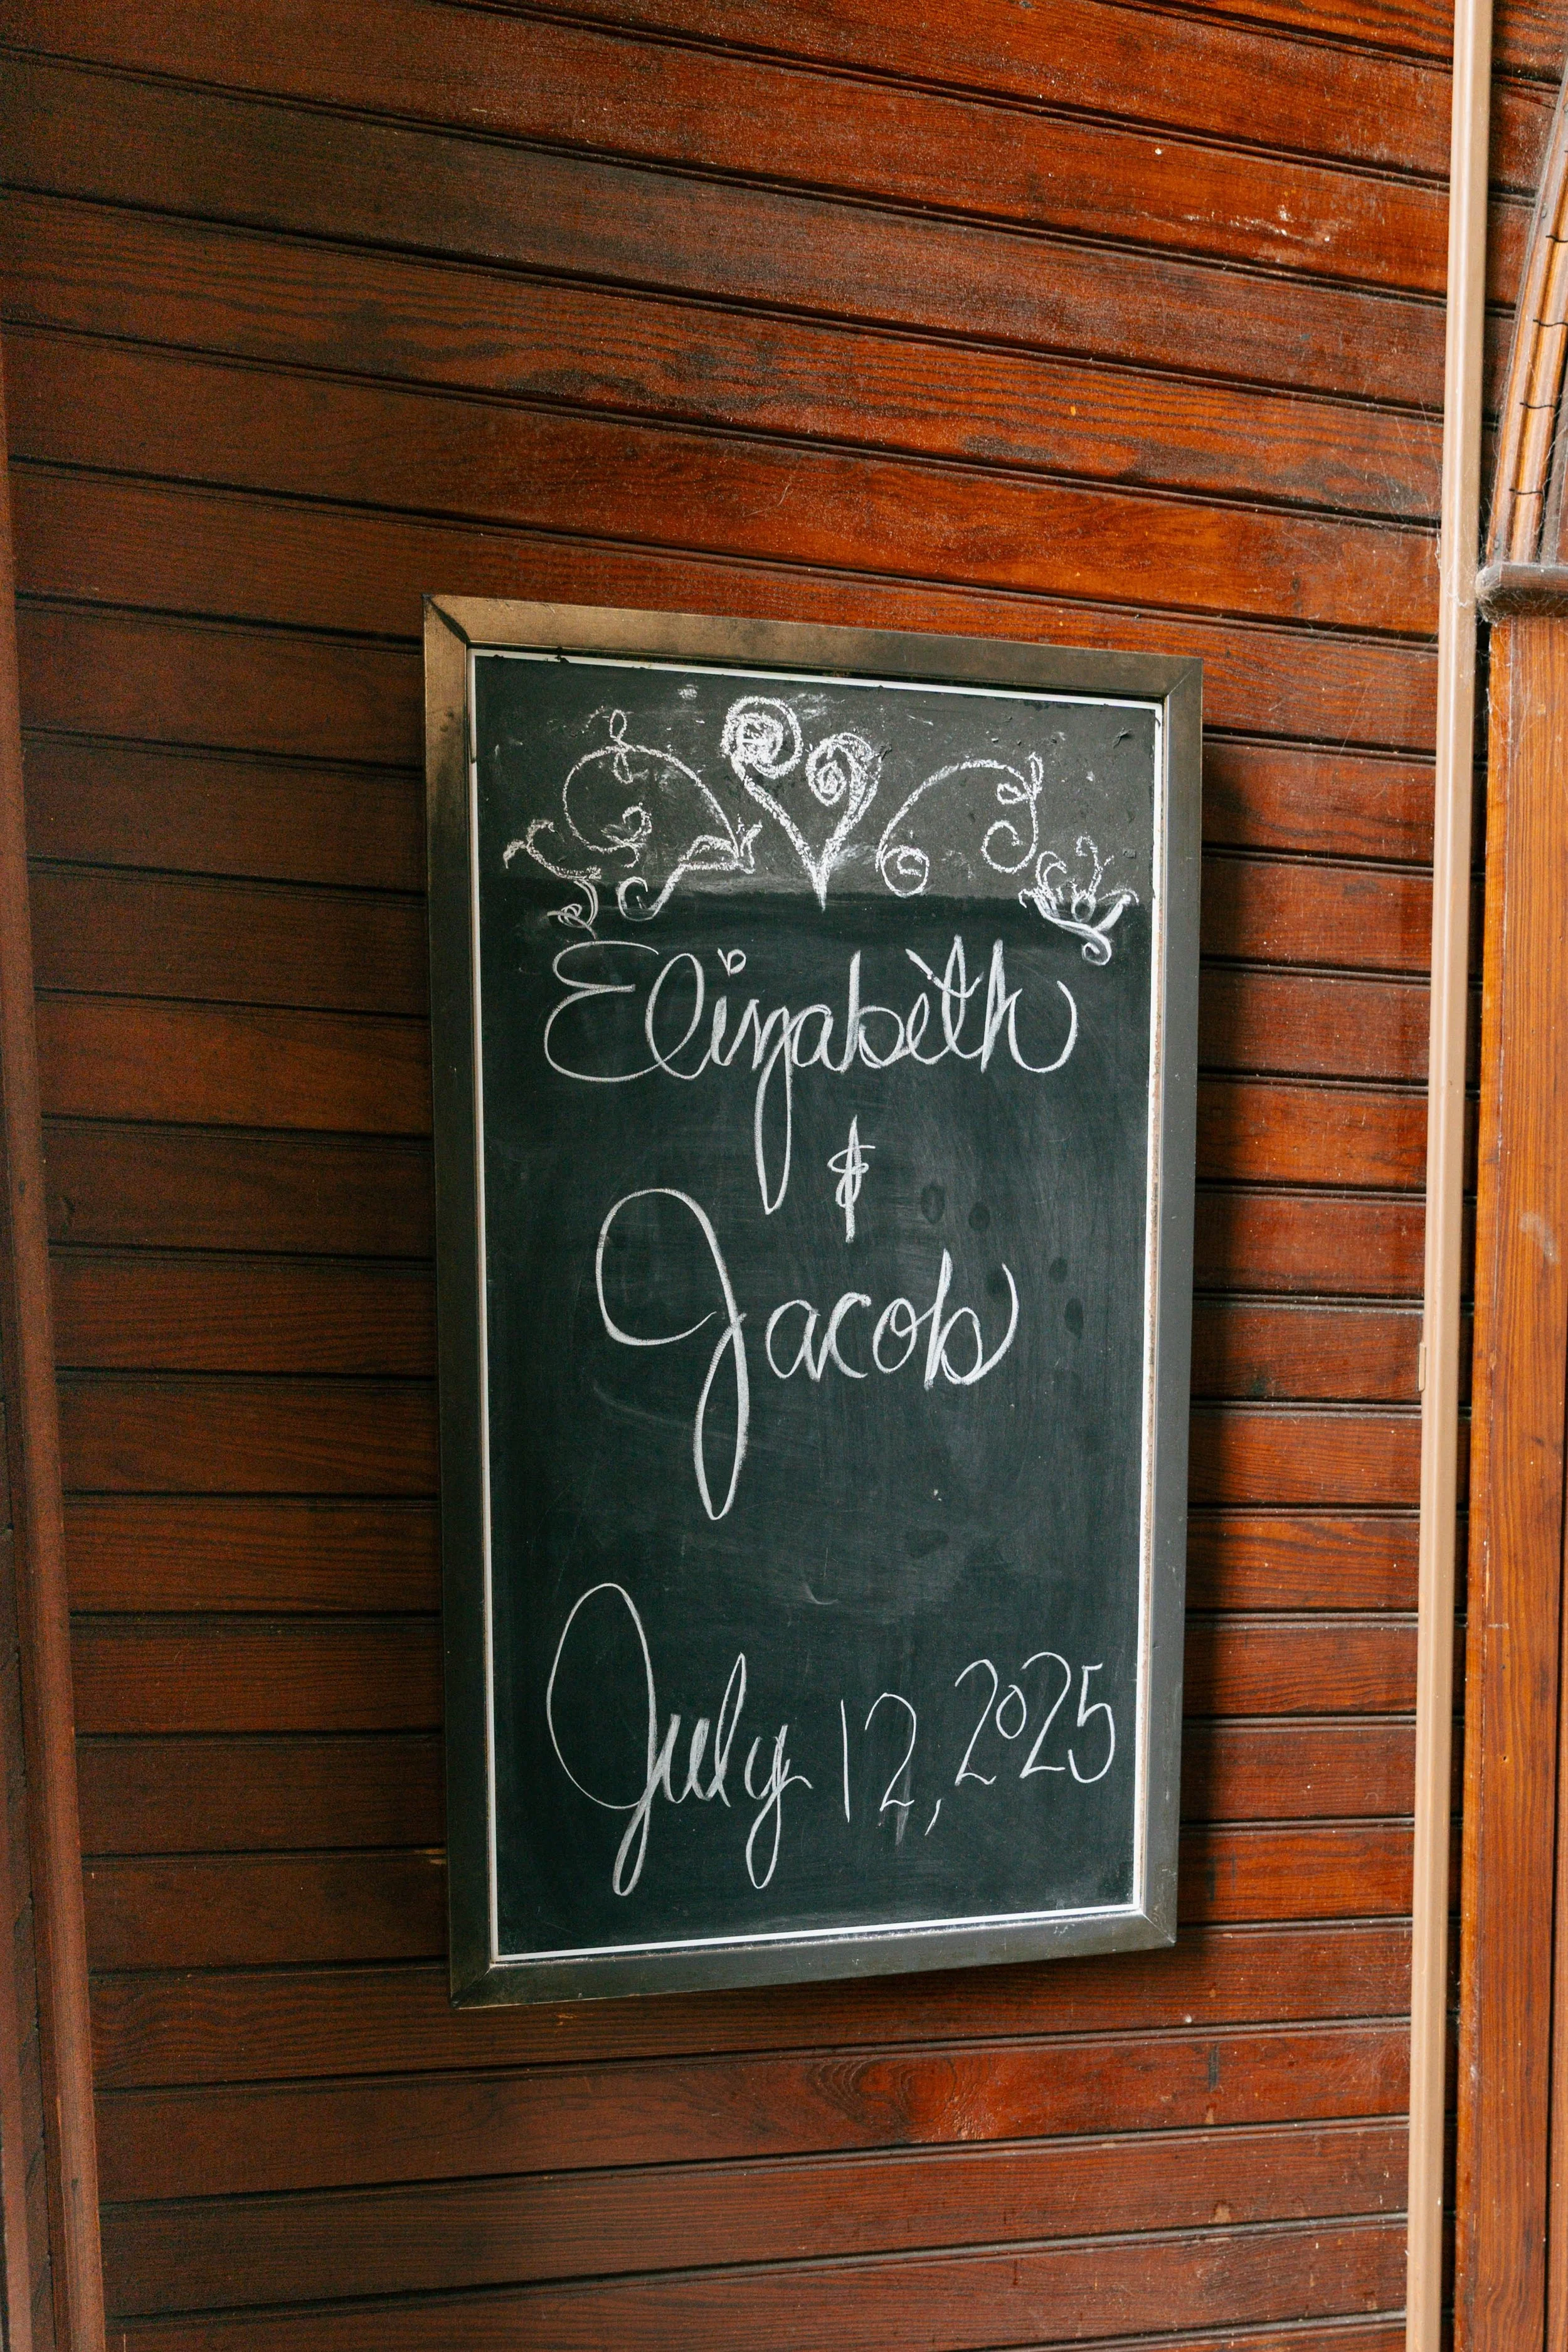 Elizabeth
&
Jacob
July 12, 2025